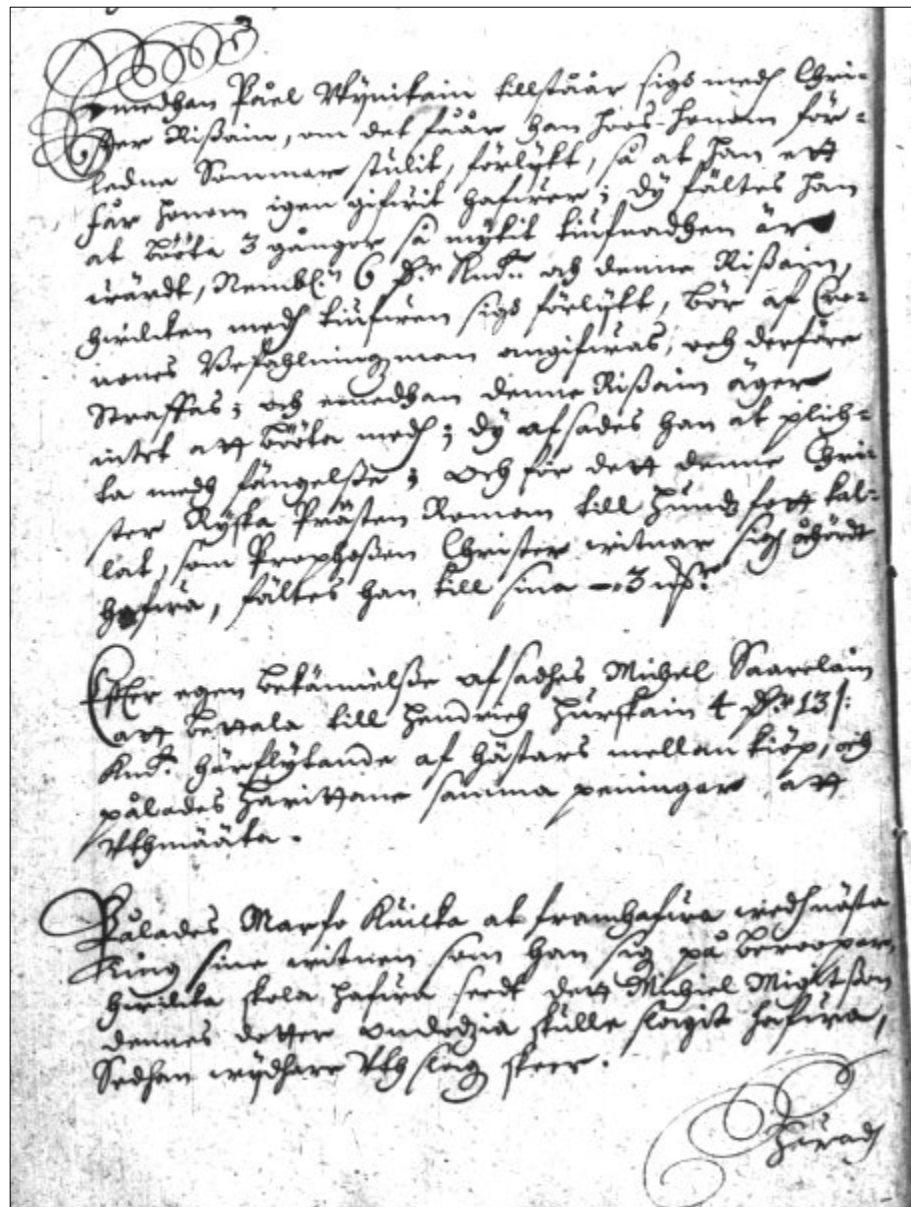 Emedhan Påel Wynikain tillståår sigh medh Chri-
ster Rißain, om det fåår han hoos honom för-
ledne Sommar stulit, förlykt, så at han ett
fåår honom igen gifwit hafwer; dy fältes han
at bööta 3 gånger så mykit tiufnadhen är
wärdt, Nembl: 6 Dr Kmt. och denne Rißain,
hwilken medh tiufwen sigh förlykt, bör af Cro-
nones Befahlningzman angifwas, och derföre
Straffas; och emedhan denne Rißain äger
intet att bööta medh; dy afsades han at plich-
ta medh fängelße; och för dett denne Chri-
ster Ryska Prästen Roman till hundzfott kal-
lat, som Prophoßen Christer witnar sigh åhördt
hafwa, fältes han till sina 3 mkr
Effter egen bekännelße afsades Michel Saarelain
att bettala till Hendrich Hurskain 4 Dr 13 /:
Kmt. härflytande af hästars mellankiöp, och
pålades Harittane samma peningar att
Uthmääta.
Pålades Marfo Kuilka at framhafwa wedh nästa
Ting sine witnen som han sig på beroopar,
hwilka skola hafwa seedt dett Michel Mighitson
dennes dotter Ondodzia skulle slagit hafwa,
Sedhan wydhare Uthslag skeer.
Härad